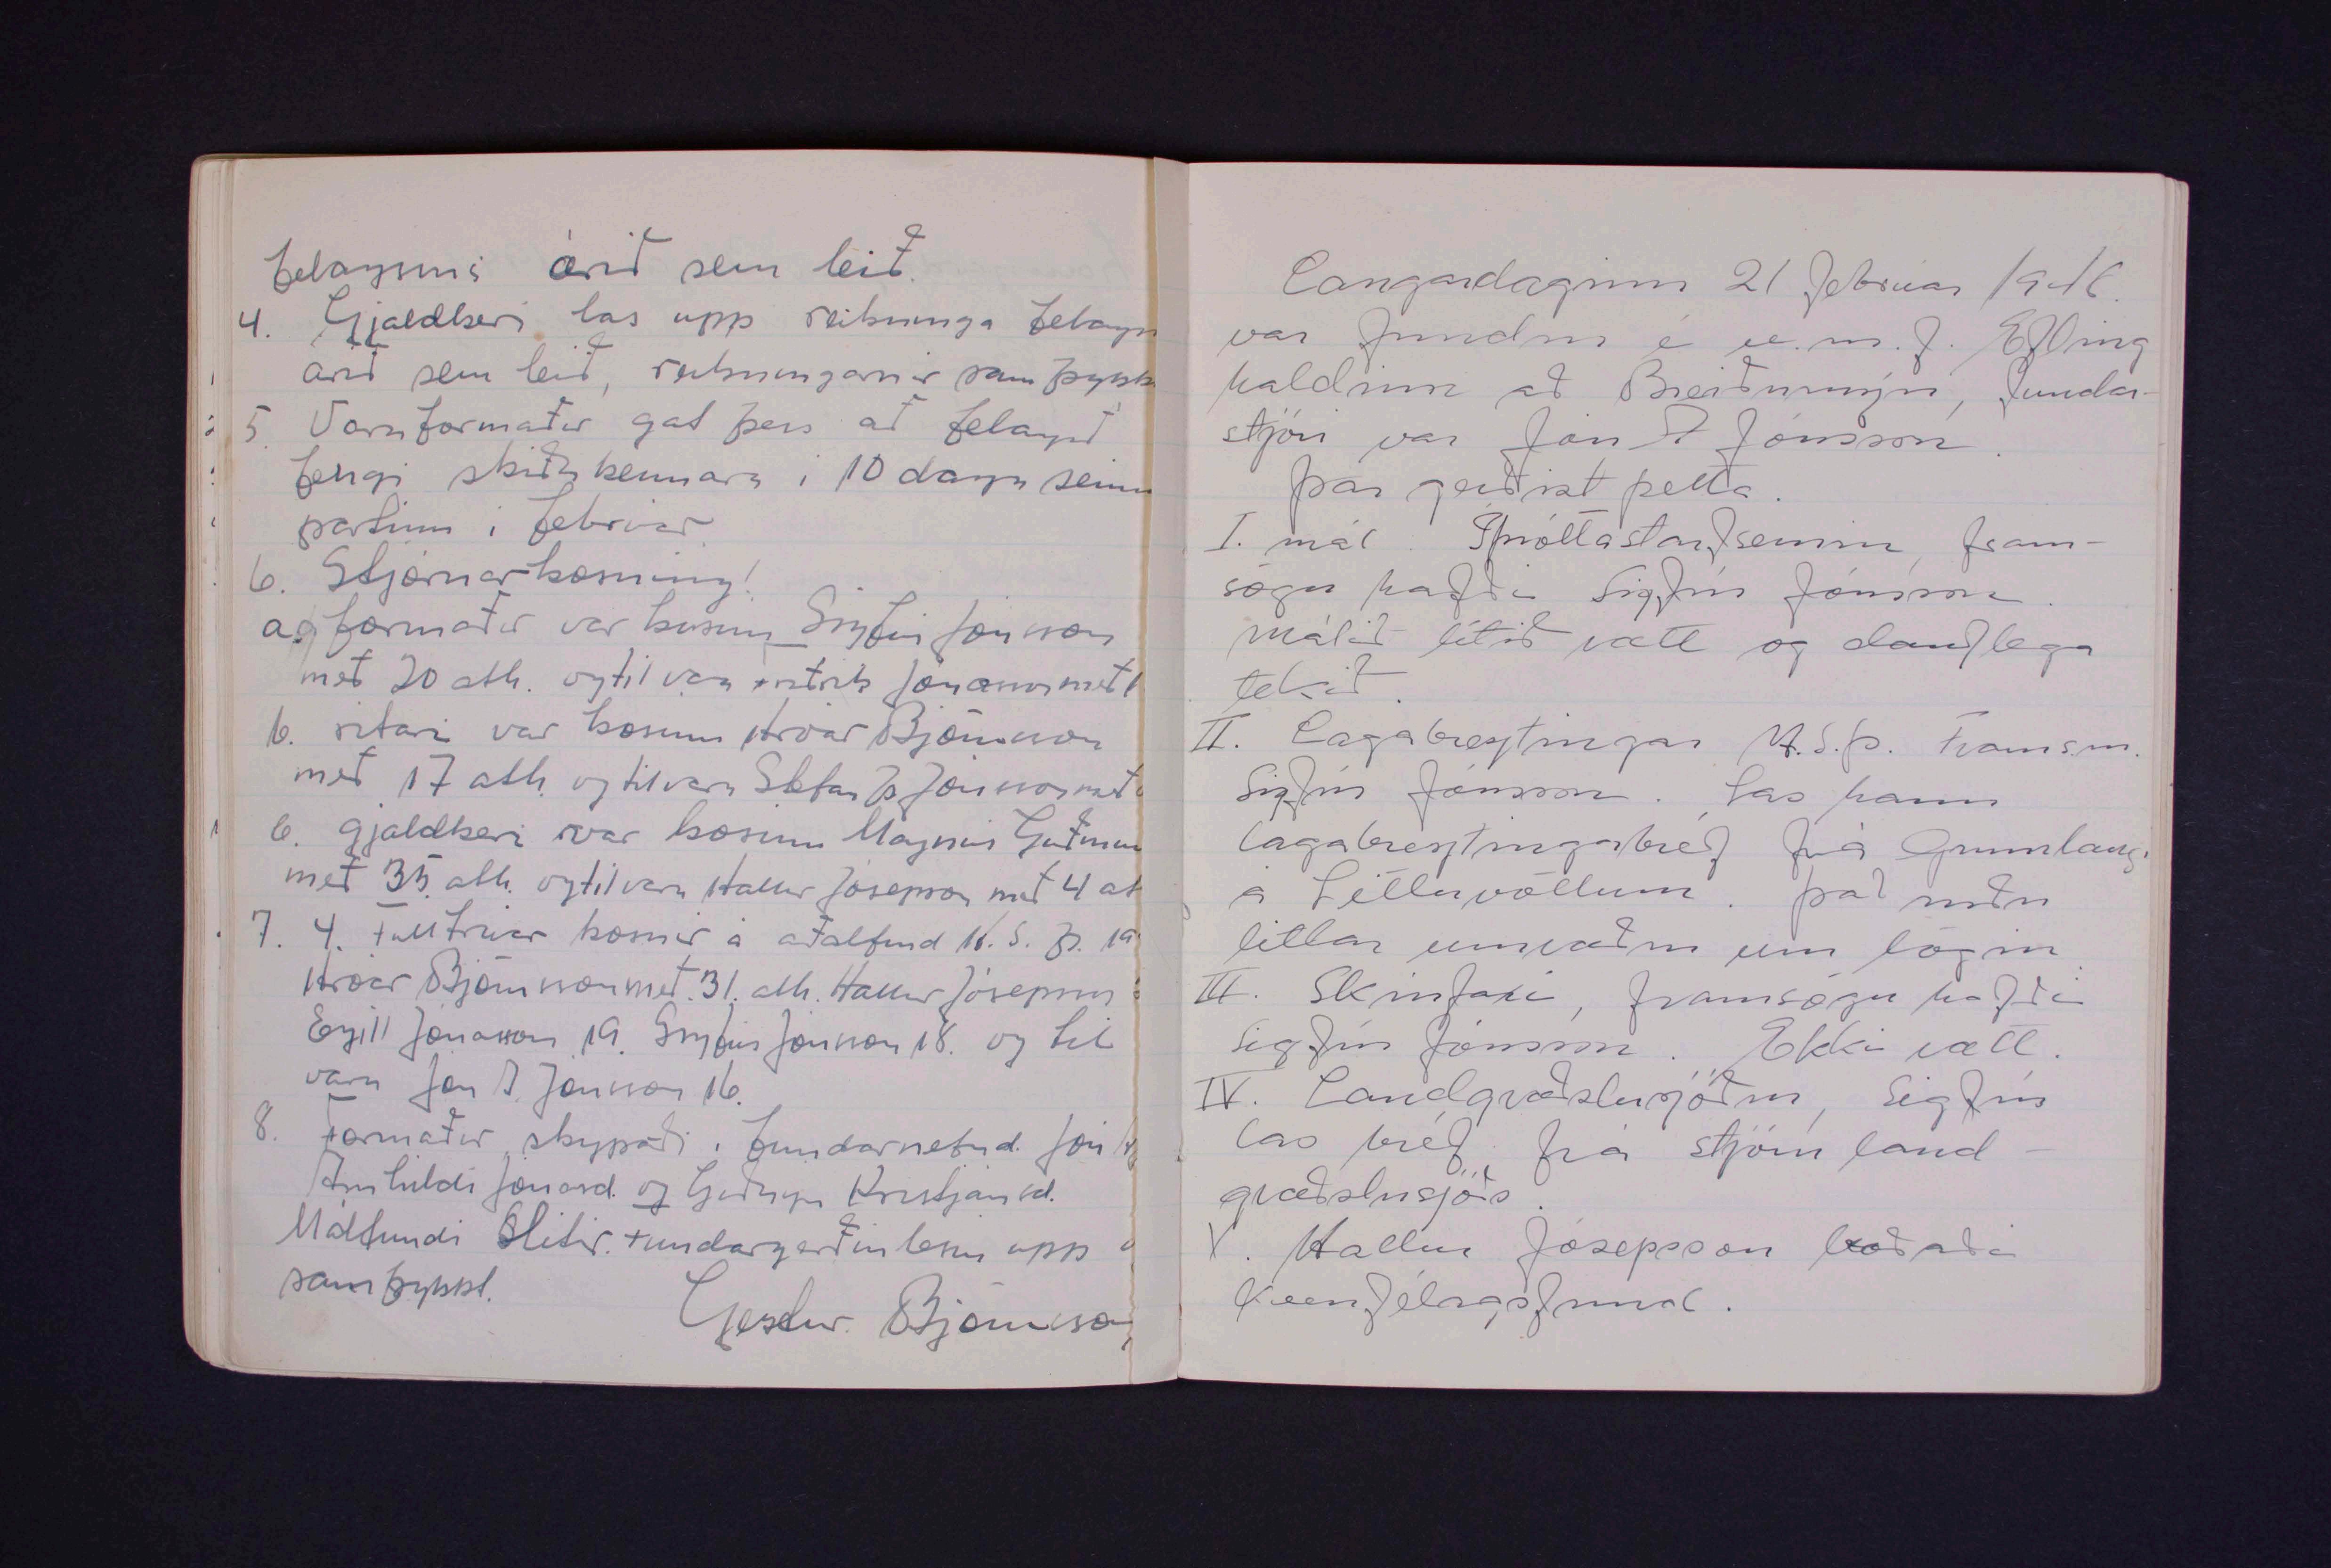 felagsins árið sem leið.
4. Gjaldkeri las upp reikninga felags
árið sem leið, reikningarnir samþykk
5. Varaformaður gat þess að felagið
fengi skiðakennara i 10 daga seinni
partinn i febrúar.
6. Stjórnarkosning!
a, formaður var kosinn Sigfús Jónsson
með 20 atk. og til vara Jónasson með
b. ritari var kosinn Hróar Björnsson
með 17 atk. og til vara Stefán Þ Jónsson með
c. gjaldkeri var kosinn Magnús Guðmun
með 35 atk. og til vara Hallur Jósepson með 4 at
7. 4. Fulltrúar kosnir á aðalfund H.S.Þ. 19
Hróar Björnsson með 31. atk. Hallur Jósepson
Egill Jónasson 19. Sigfús Jónsson 18. og til
vara Jón A. Jónsson 16.
8. Formaður skypaði i fundarnefnd. Jón
Arnhildi Jónasd. og Guðrúnu Kristjánsd.
Málfundi Slitið. Fundargerðin lesin upp
samþykkt.
Gestur Björnsson
Laugardaginn 21 febrúar 1946.
var fundur í u.m.f. Efling
haldinn að Breiðumýri, fundar-
stjóri var Jón A Jónsson.
Þar gerðist þetta.
I. mál. Íþróttastarfsemin, fram-
sögu hafði Sigfús Jónsson.
Málið lítið rætt og dauflega
tekið.
II. Lagabreytingar H.S.Þ. Framsm.
Sigfús Jónsson. Las hann
lagabreytingabréf frá Gunnlaugi
á Litluvöllum. Það urðu
litlar umræður um lögin.
III. Skinfaxi, framsögu hafði
Sigfús Jónsson. Ekki rætt.
IV. Landgræðslusjóður, Sigfús
las bréf frá stjórn land-
græðslusjóðs.
V. Hallur Jósepsson boðaði
kvenfélagsfund.